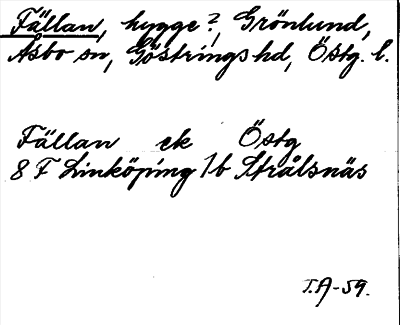 Fällan, hygge?, Grönlund,
Åsbo sn, Göstrings hd, Östg. l.
Fällan ek Östg
8 F Linköping 1b Strålsnäs
T.A-59.